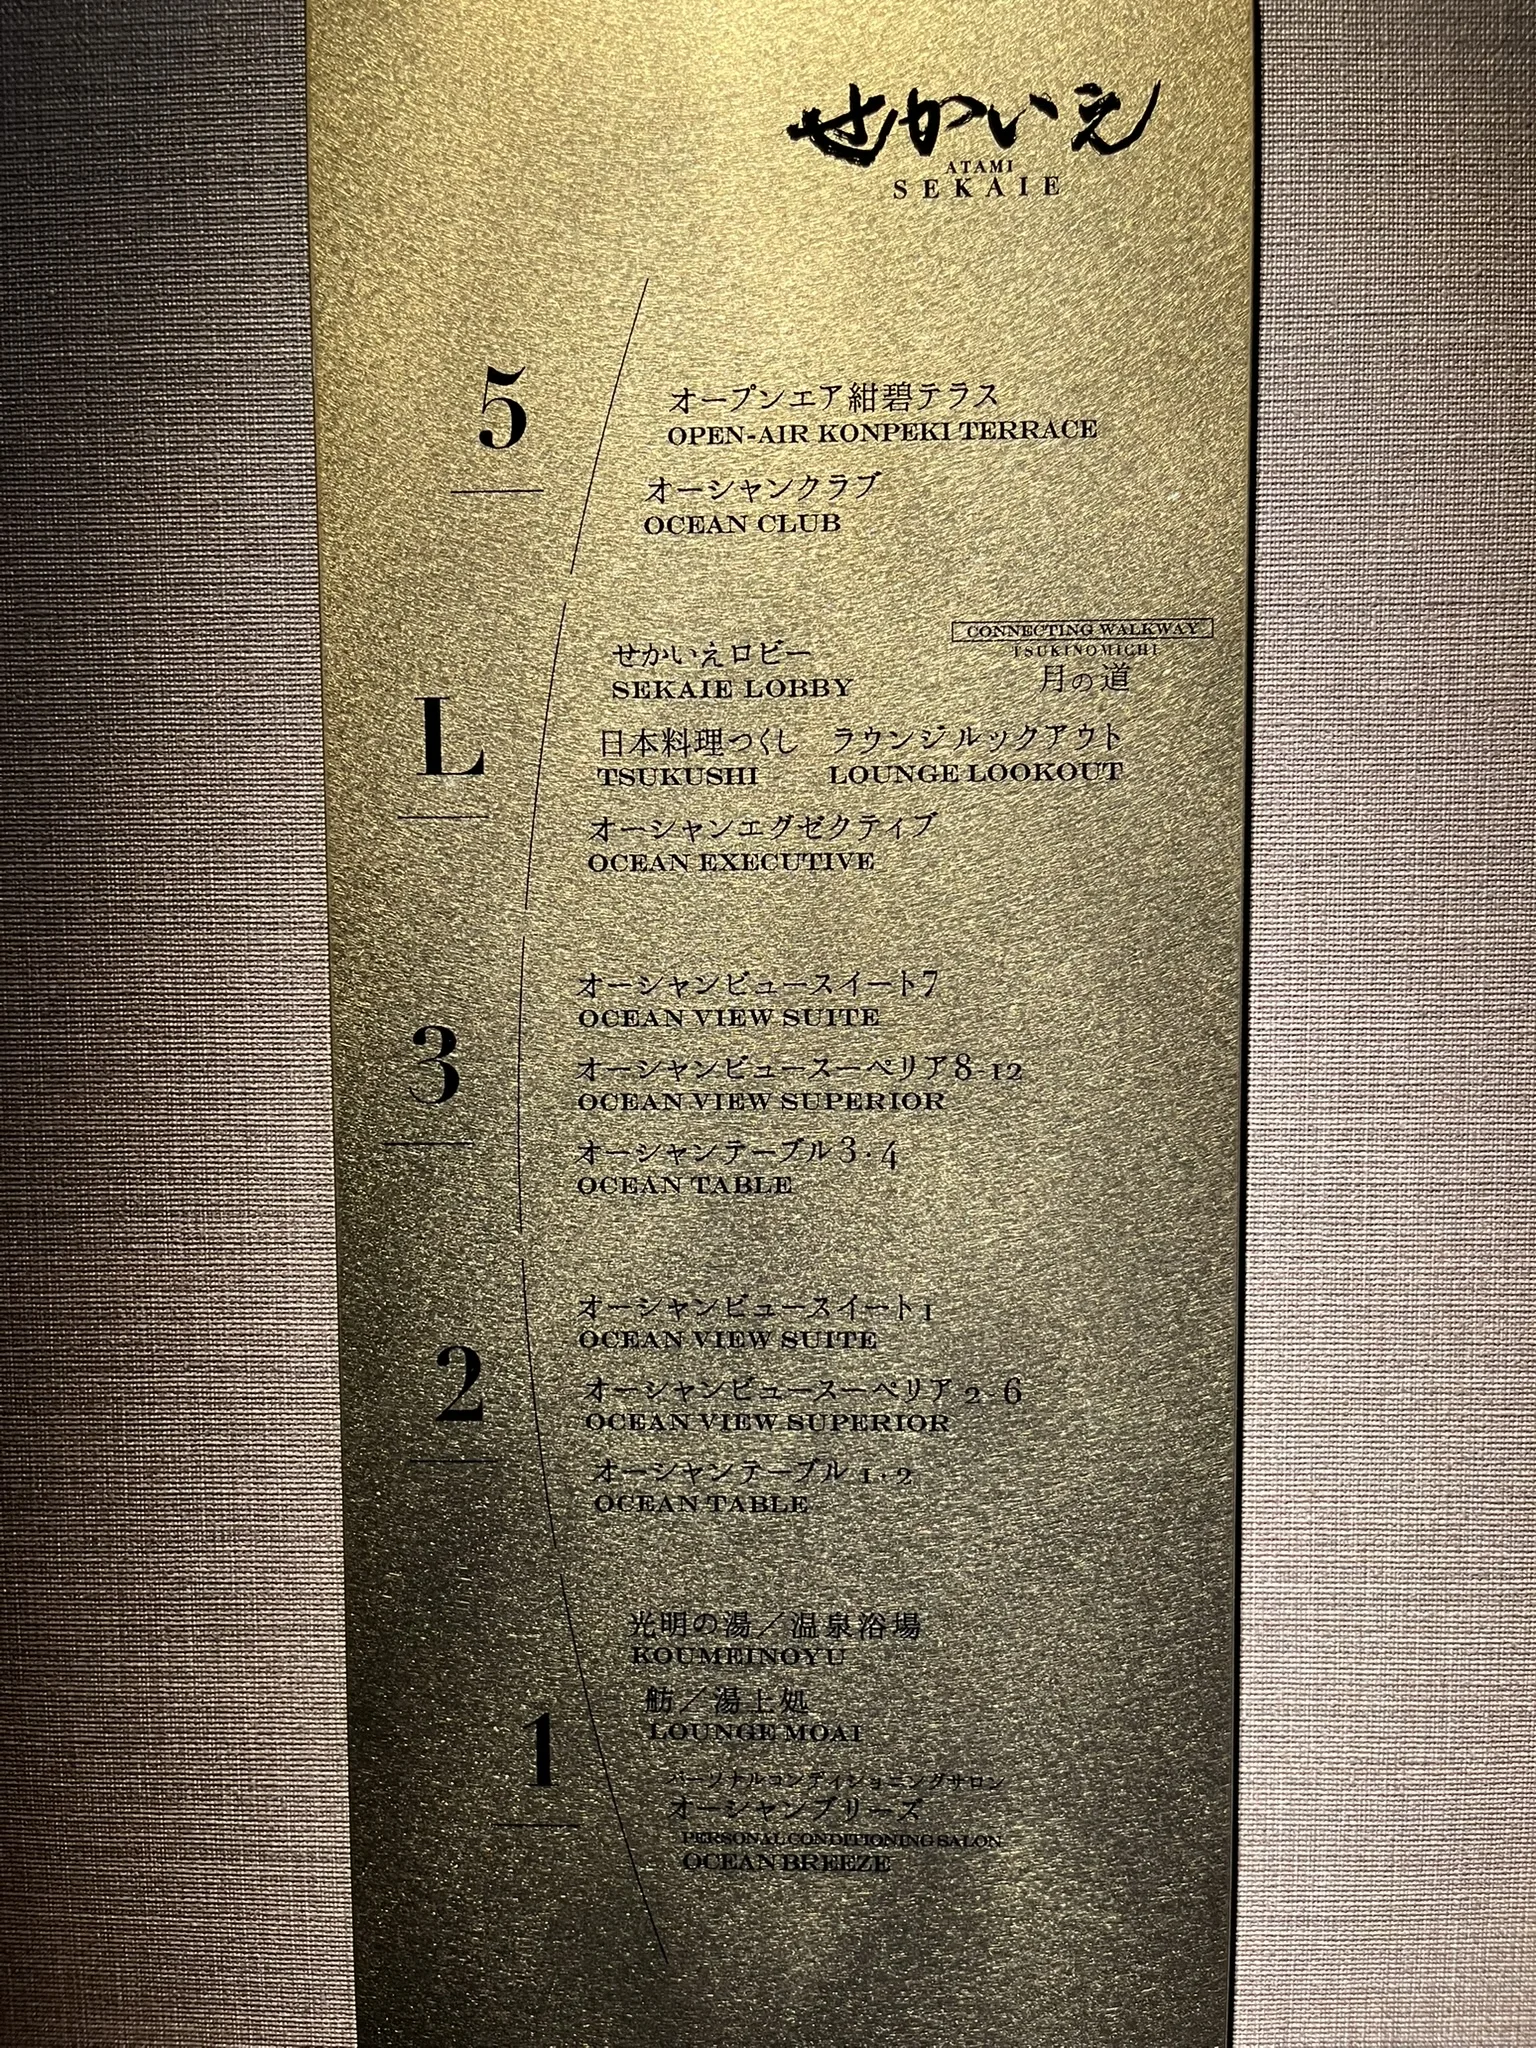 せかいえ
ATAMI
SEKAIE
5
オープンエア紺碧テラス
OPEN-AIR KONPEKI TERRACE
オーシャンクラブ
OCEAN CLUB
L
せかいえロビー
SEKAIE LOBBY
CONNECTING WALKWAY
TSUKINOMICHI
月の道
日本料理つくし ラウンジルックアウト
TSUKUSHI LOUNGE LOOKOUT
オーシャンエグゼクティブ
OCEAN EXECUTIVE
3
オーシャンビュースイート7
OCEAN VIEW SUITE
オーシャンビュースーペリア8-12
OCEAN VIEW SUPERIOR
オーシャンテーブル3・4
OCEAN TABLE
2
オーシャンビュースイート1
OCEAN VIEW SUITE
オーシャンビュースーペリア2-6
OCEAN VIEW SUPERIOR
オーシャンテーブル1・2
OCEAN TABLE
1
光明の湯／温泉浴場
KOUMEINOYU
舫／湯上処
LOUNGE MOAI
パーソナルコンディショニングサロン
オーシャンブリーズ
PERSONAL CONDITIONING SALON
OCEAN BREEZE